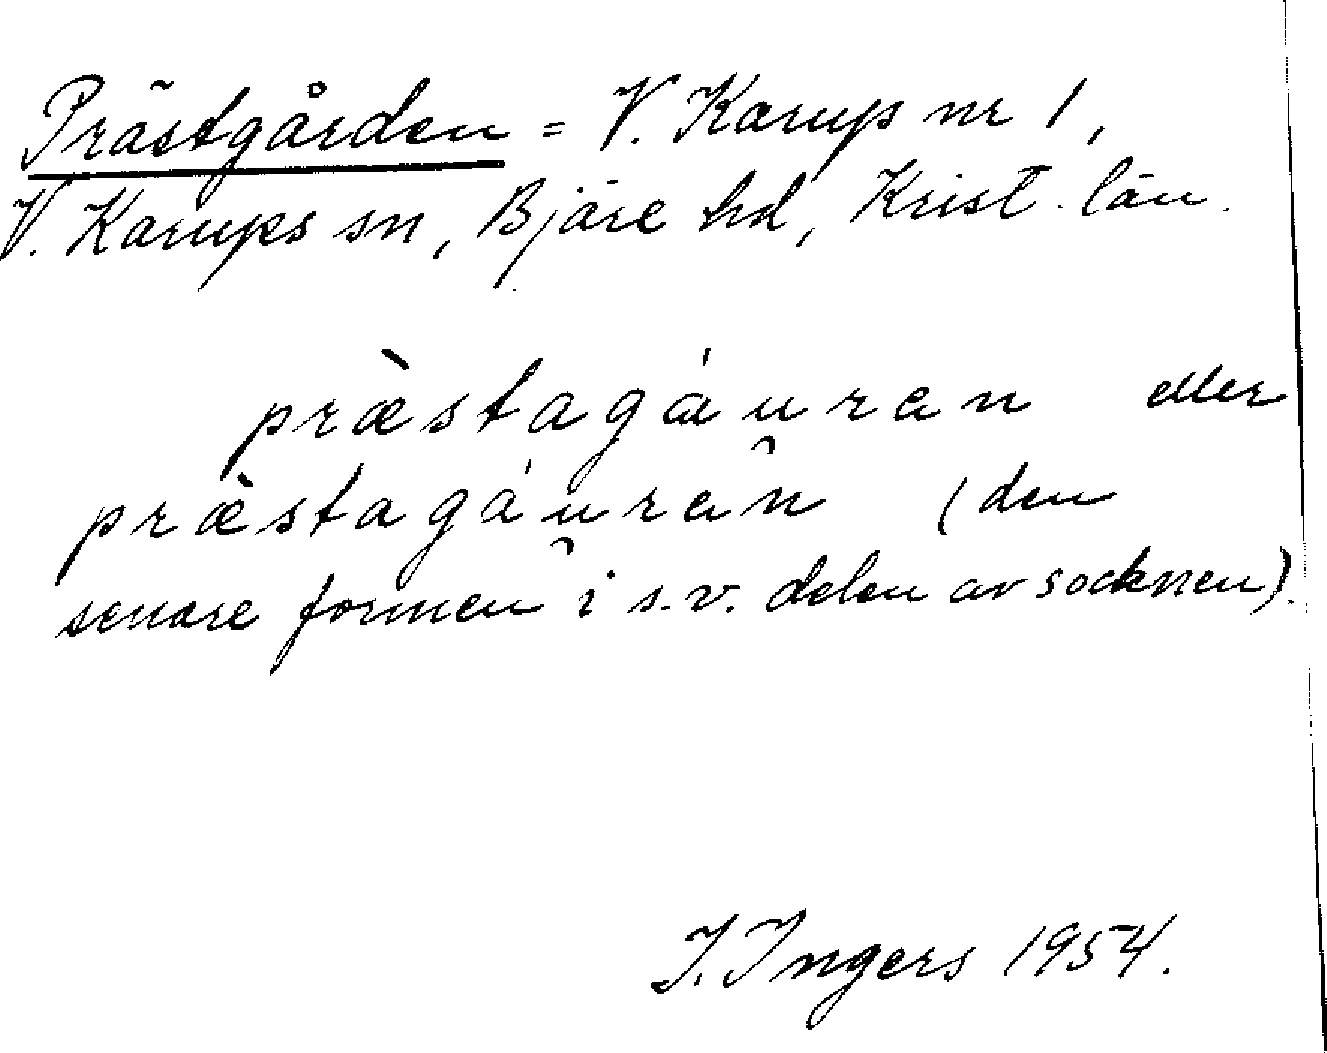 Prästgården = V. Karup nr 1,
V. Karups sn, Bjäre hd, Krist. län.
præ̀stagáu̯ran eller
præ̀stagáu̯ran (den
senare formen i s.v. delen av socknen).
I. Ingers 1954.